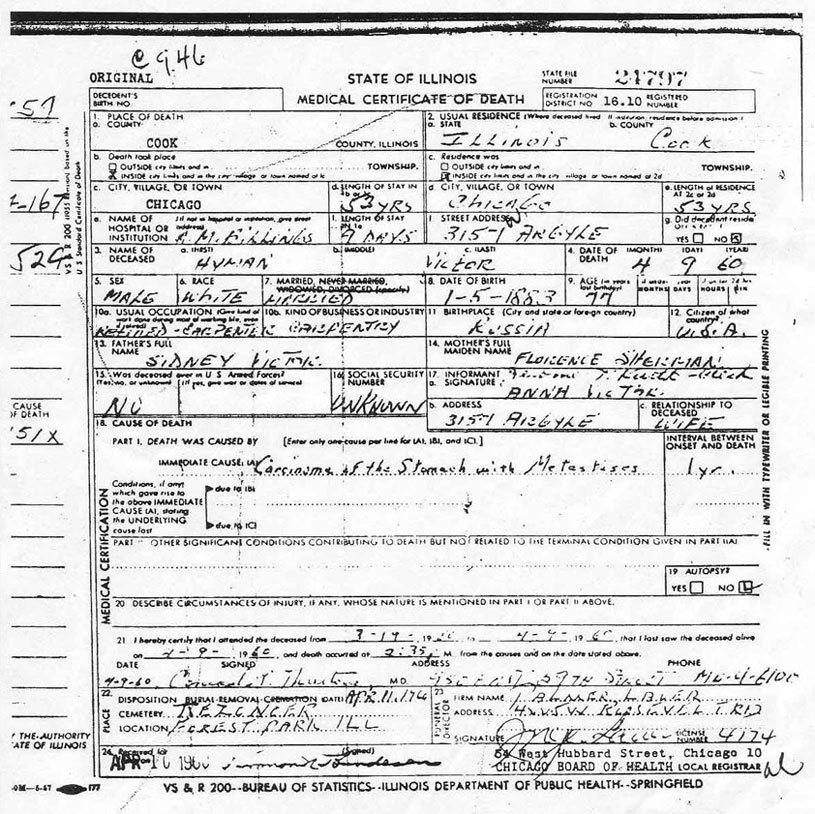 C 946
ORIGINAL STATE OF ILLINOIS STATE FILE NUMBER 24797
DECEDENT'S BIRTH NO. MEDICAL CERTIFICATE OF DEATH REGISTRATION DISTRICT NO. 16.10 REGISTERED NUMBER
1. PLACE OF DEATH
a. COUNTY COOK COUNTY, ILLINOIS
2. USUAL RESIDENCE (Where deceased lived. If institution, residence before admission)
a. STATE Illinois b. COUNTY Cook
b. Death took place
OUTSIDE city limits and in TOWNSHIP.
INSIDE city limits and in the city, village or town named at c
c. Residence was
OUTSIDE city limits and in TOWNSHIP.
INSIDE city limits and in the city, village or town named at 2d
c. CITY, VILLAGE, OR TOWN CHICAGO
d. LENGTH OF STAY IN 53 YRS
d. CITY, VILLAGE, OR TOWN CHICAGO
e. LENGTH OF RESIDENCE AT 2c or 2d 53 YRS
e. NAME OF HOSPITAL OR INSTITUTION (If not in hospital or institution, give street address) A.M. BILLINGS
f. LENGTH OF STAY 9 DAYS
f. STREET ADDRESS 3157 ARGYLE
g. Did decedent reside YES NO
3. NAME OF DECEASED a. (FIRST) HYMAN b. (MIDDLE) c. (LAST) VICTOR
4. DATE OF DEATH (MONTH) (DAY) (YEAR) 4 9 60
5. SEX MALE
6. RACE WHITE
7. MARRIED, NEVER MARRIED, WIDOWED, DIVORCED (specify) MARRIED
8. DATE OF BIRTH 1-5-1883
9. AGE (in years last birthday) 77 MONTHS DAYS HOURS MIN
10a. USUAL OCCUPATION (Give kind of work done during most of working life, even if retired) RETIRED-CARPENTER
10b. KIND OF BUSINESS OR INDUSTRY CARPENTRY
11. BIRTHPLACE (City and state or foreign country) RUSSIA
12. Citizen of what country? U.S.A.
13. FATHER'S FULL NAME SIDNEY VICTOR
14. MOTHER'S FULL MAIDEN NAME FLORENCE SHERMAN
15. Was deceased ever in U.S. Armed Forces?
(Yes, no, or unknown) (If yes, give war or dates of service)
NO
16. SOCIAL SECURITY NUMBER UNKNOWN
17. INFORMANT
a. SIGNATURE ANNA VICTOR
b. ADDRESS 3157 ARGYLE
c. RELATIONSHIP TO DECEASED WIFE
18. CAUSE OF DEATH
PART I. DEATH WAS CAUSED BY [Enter only one cause per line for (A), (B), and (C).]
INTERVAL BETWEEN ONSET AND DEATH
IMMEDIATE CAUSE (A) Carcinoma of the Stomach with Metastases 1 yr.
Conditions, if any, which gave rise to the above IMMEDIATE CAUSE (A), stating the UNDERLYING cause last
due to (B)
due to (C)
PART II OTHER SIGNIFICANT CONDITIONS CONTRIBUTING TO DEATH BUT NOT RELATED TO THE TERMINAL CONDITION GIVEN IN PART I(A)
19 AUTOPSY?
YES NO
20 DESCRIBE CIRCUMSTANCES OF INJURY, IF ANY, WHOSE NATURE IS MENTIONED IN PART I OR PART II ABOVE.
21 I hereby certify that I attended the deceased from 3-19-, 1960 to 4-9-, 1960, that I last saw the deceased alive
on 4-9-, 1960, and death occurred at 2:35, M. from the causes and on the date stated above.
DATE SIGNED ADDRESS PHONE
4-9-60, M.D.
22. PLACE
DISPOSITION BURIAL-REMOVAL-CREMATION DATE APR 11,
CEMETERY
LOCATION FOREST PARK ILL
23 FUNERAL DIRECTOR
FIRM NAME
ADDRESS ROOSEVELT RD
SIGNATURE LICENSE NUMBER 4174
24. Received for (Signed)
APR 10 1960
54 West Hubbard Street, Chicago 10
CHICAGO BOARD OF HEALTH LOCAL REGISTRAR
VS & R 200--BUREAU OF STATISTICS--ILLINOIS DEPARTMENT OF PUBLIC HEALTH--SPRINGFIELD
MEDICAL CERTIFICATION
FILL IN WITH TYPEWRITER OR LEGIBLE PRINTING
U S Standard Certificate of Death
CAUSE OF DEATH
51X
Y THE AUTHORITY
ATE OF ILLINOIS
177